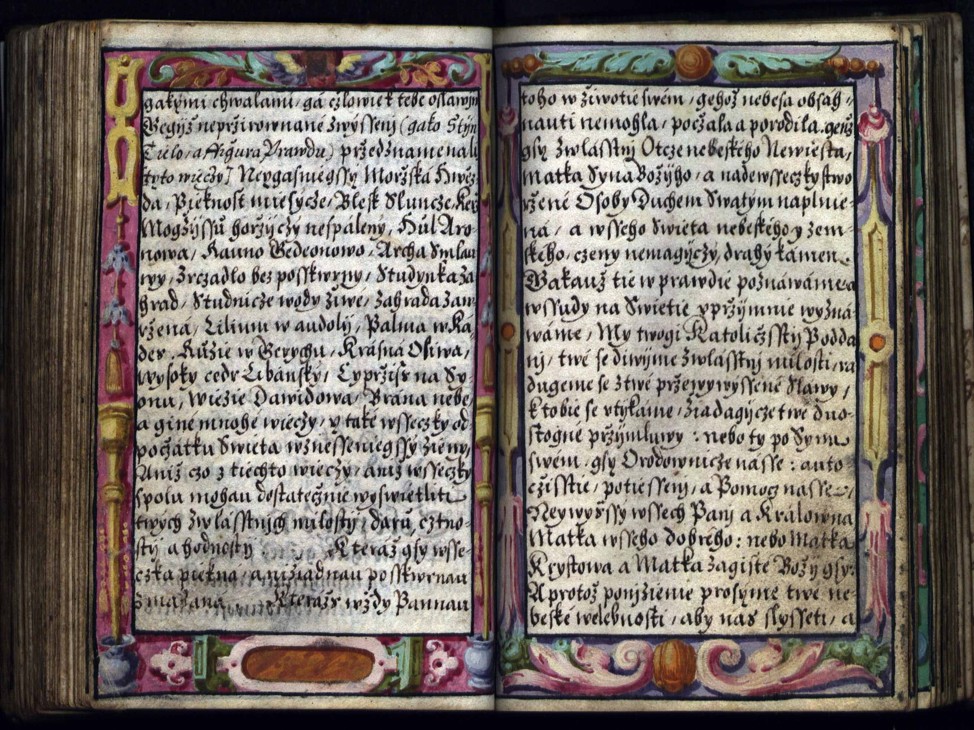 gakymi chwalami, gá człowiek tebe oslawym
Gegijž nepržirownané zwysseni (gako Styn
Tielo, a ffigura Prawdu) przedznamenali
tyto wieczy] Neygasniegssy Moržská Hwěz-
da, Pieknost miesycze, Blesk Sluncze, Keř
Mogžijssů horžyczy nespaleny, Húl Aro-
nowa, Rauno Gedeonowo, Archa Smlau
wy, Zrczadlo bez posskwrny, Studynka Za
hrad, Studnicze wody žiwe, zahrada zaw
ržená, Lilium w audolij, Palma w Ká
der, Růžie w Gerychu, Krásná Oliwa,
wysoky cedr Libansky, Cypržiss na Sy-
onu, Wieže Dawidowa, Brána nebe,
a giné mnohé wieczy, y také wsseczky od
počátku Swieta wznesseniegssy ženy,
Aniž czo z tiechto wieczy, aniž wsseczky
spolu mohau dostatecznie wyswietliti
twych zwlásstnijch milosty, darů, cztno-
sty a hodnosty Kteráž gsy wsse-
czka piekna, a nižiadnau posskwrnau
zmazana Kterážs wždy Pannau
toho w žiwotie swém, gehož nebesa obsáh-
nauti nemohla, počzala a porodila. genž
gsy zwlásstnij Otcze nebeského Newiesta,
Matka Syna Božijho, a nade wsseczky stwo
ržené Osoby Duchem Swatým naplnie-
ná, a wsseho Swieta nebeského y zem-
ského, czeny nemagijczy, drahý kámen.
Gakauž tie w prawdie poznáwáme, a
wssudy na Swietie vpržijmnie wyzná-
wáme, My twogi Katoličsstij Podda
nij, twé se diwijme zwlásstnij milosti, ra
dugeme se z twé przewywyssené Slawy,
k tobie se vtykáme, žiadagijcze twé duo-
stogné pržijmluwy : nebo ty po Synu
swém, gsy Orodownicze násse : auto
cžisstie, potiessenij, a Pomocz násse,
Neywyžssy wssech Panij a Králowna
Matka wsseho dobrého : nebo Matka
Krystowa a Matka zagisté Božij gsy.
A protož ponijženie prosyme twé ne-
beské welebnosti, aby nás slysseti, a